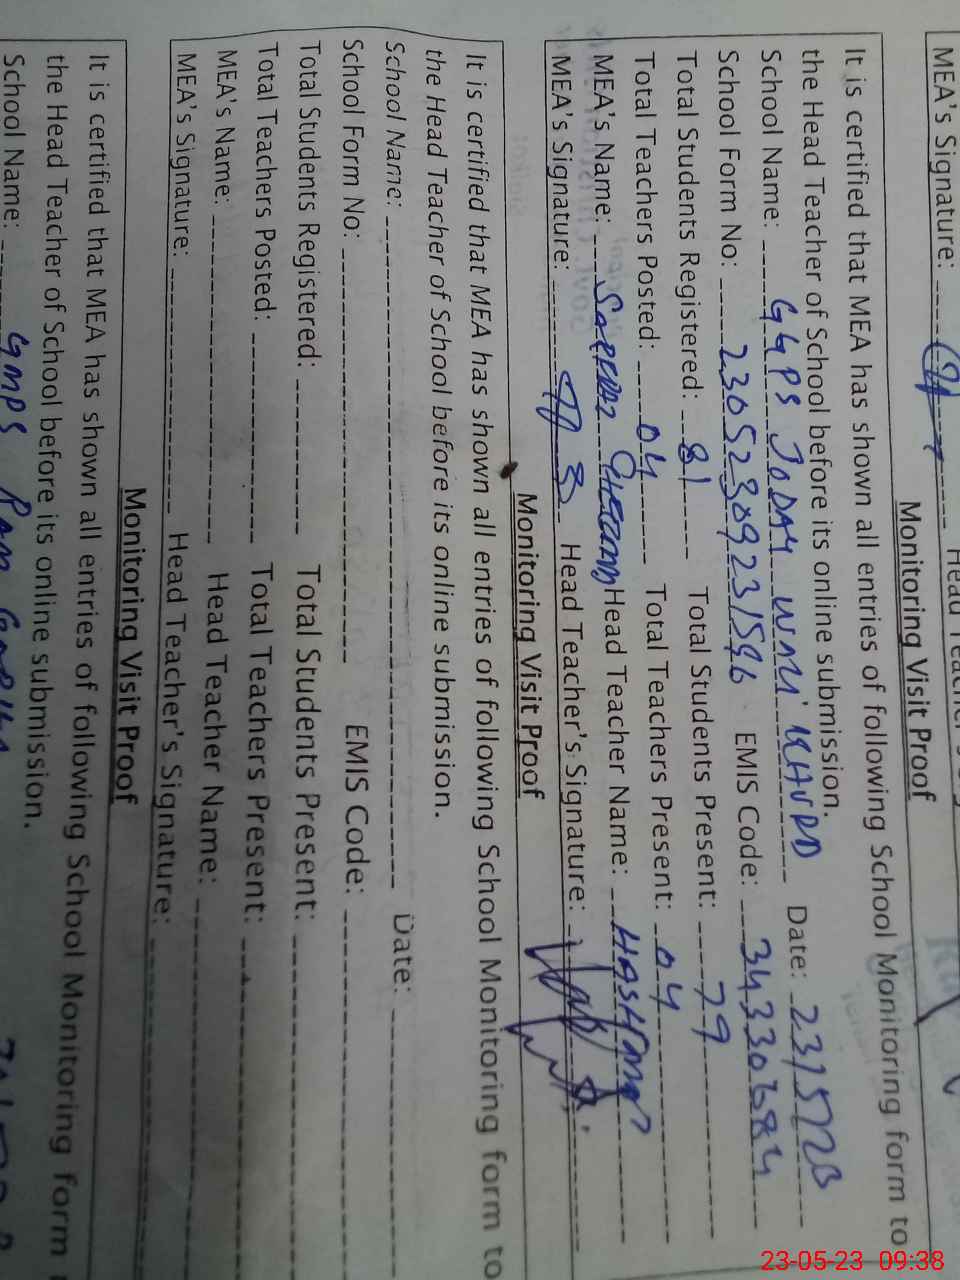 MEA's Signature: Head Teacher's
Monitoring Visit Proof
It is certified that MEA has shown all entries of following School Monitoring form to
the Head Teacher of School before its online submission.
School Name: GGPS JODAY WALI KHURD Date: 23/5/23
School Form No: 23052309231596 EMIS Code:
Total Students Registered: 81 Total Students Present: 79
Total Teachers Posted: 04 Total Teachers Present: 04
MEA's Name: Head Teacher Name:
MEA's Signature: Head Teacher's Signature:
Monitoring Visit Proof
It is certified that MEA has shown all entries of following School Monitoring form to
the Head Teacher of School before its online submission.
School Name: Date:
School Form No: EMIS Code:
Total Students Registered: Total Students Present:
Total Teachers Posted: Total Teachers Present:
MEA's Name: Head Teacher Name:
MEA's Signature: Head Teacher's Signature:
Monitoring Visit Proof
It is certified that MEA has shown all entries of following School Monitoring form
the Head Teacher of School before its online submission.
School Name: GMPS
23-05-23 09:38